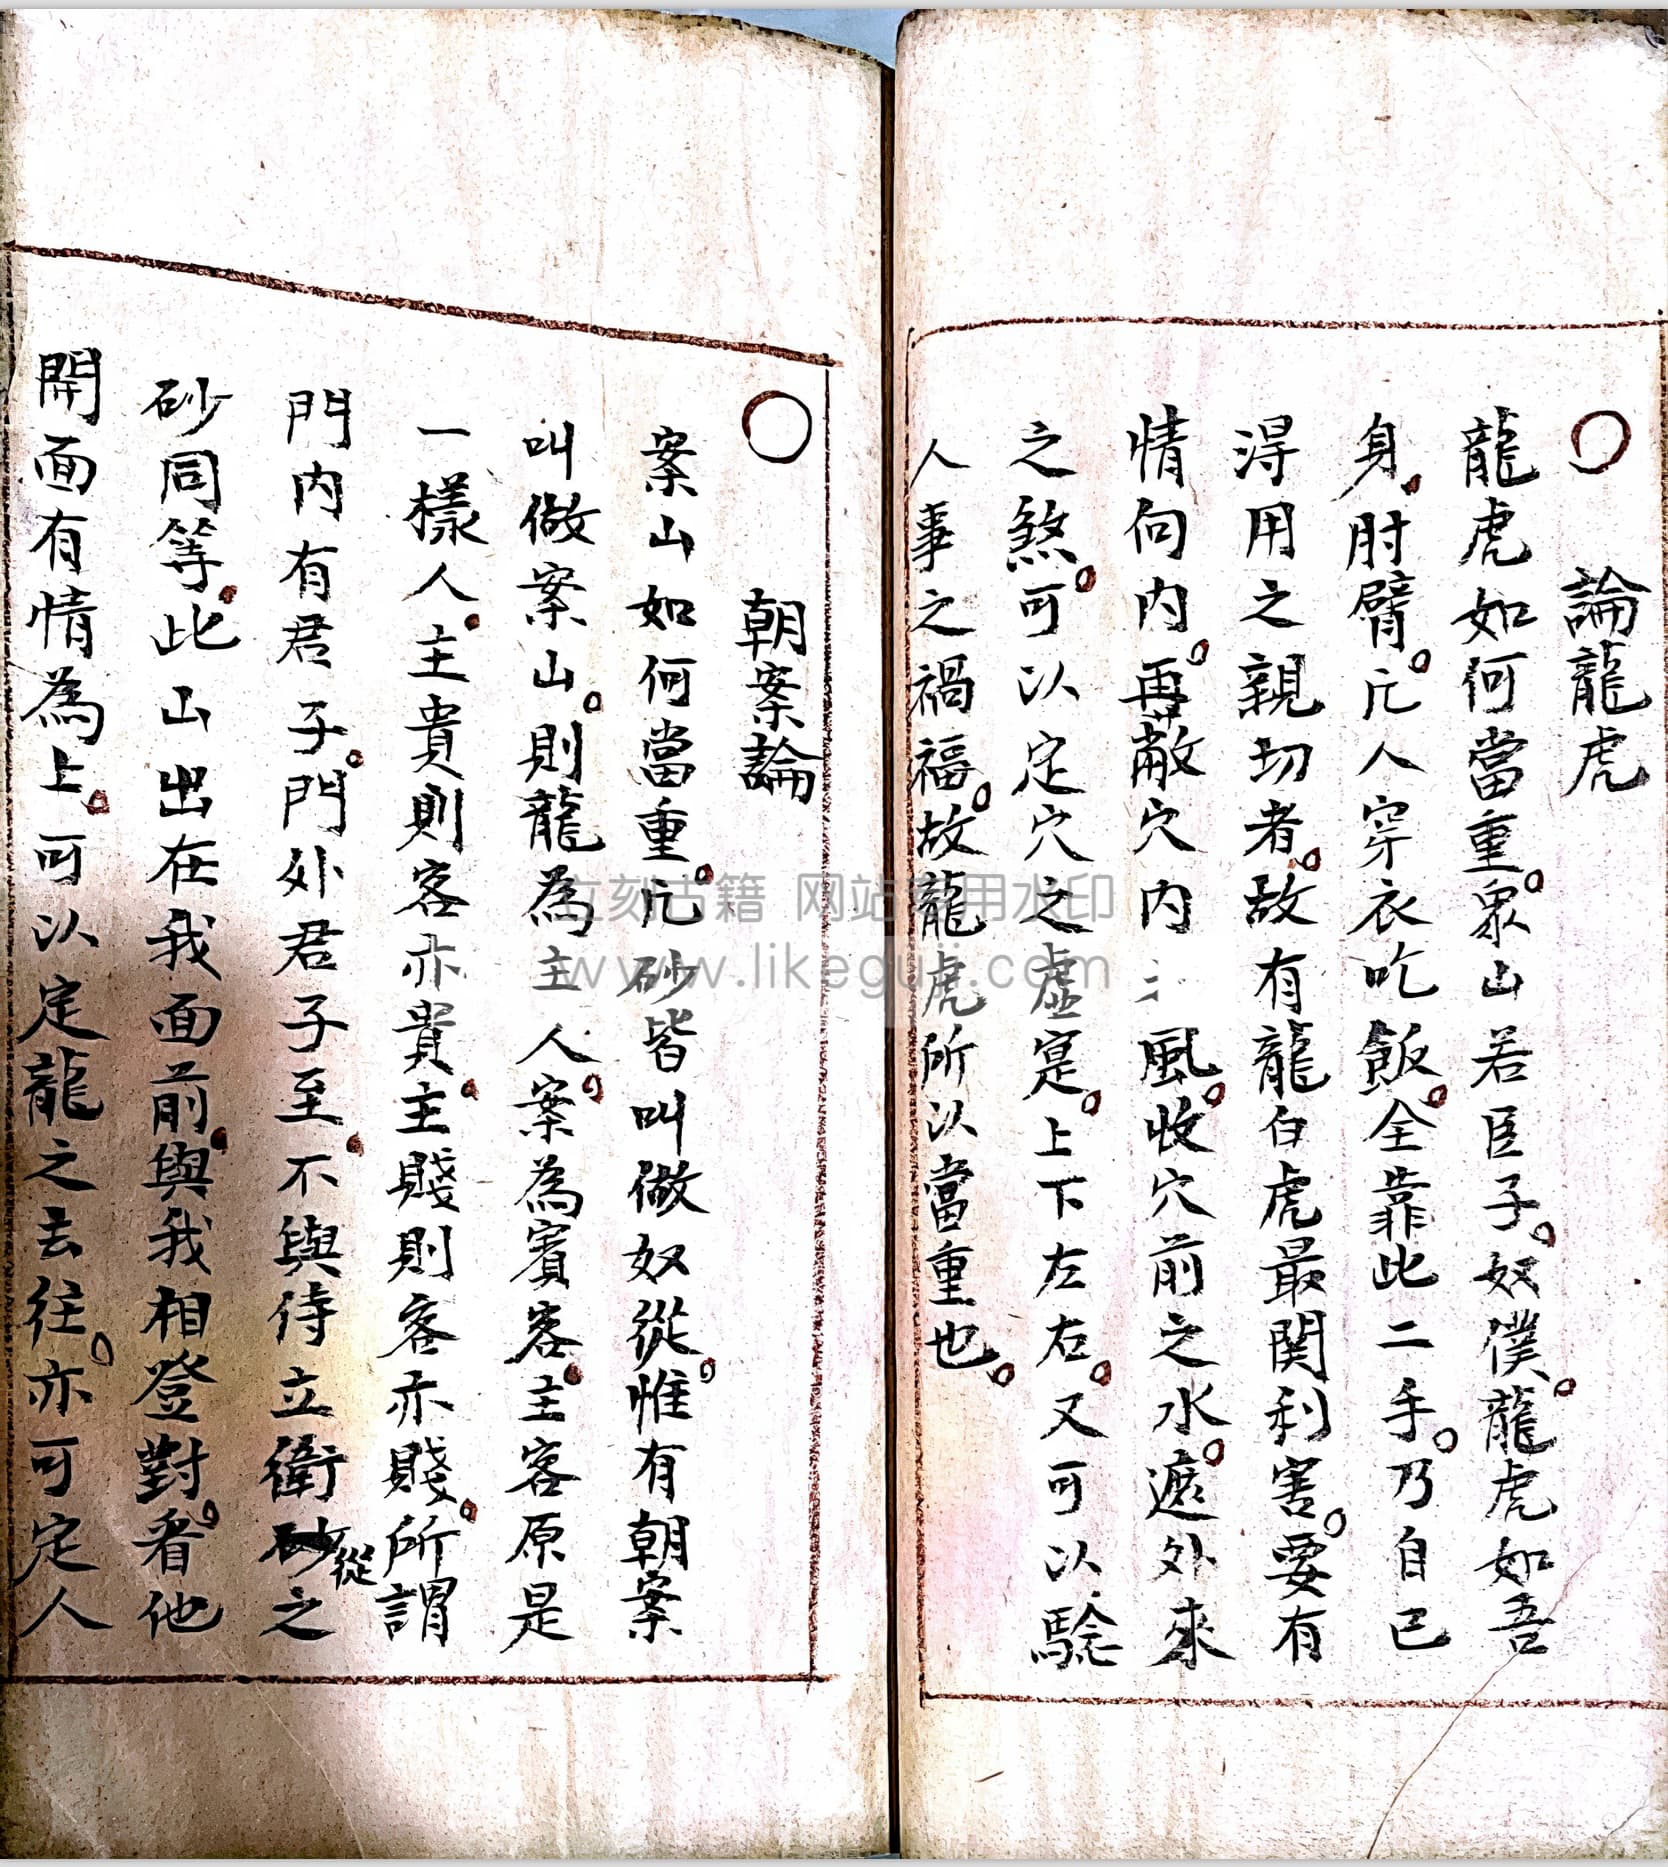 ○ 論龍虎
龍虎如何當重。衆山若臣子。奴僕。龍虎如吾
身。肘臂。凢人穿衣吃飯。全靠此二手。乃自己
淂用之親切者。故有龍白虎最関利害。要有
情向内。再蔽穴内 風。收穴前之水。遮外來
之煞。可以定穴之虚寔。上下左右。又可以騐
人事之禍福。故龍虎所以當重也。
○ 朝案論
案山如何當重。凢砂皆叫做奴從。惟有朝案
叫做案山。則龍為主人。案為賓客。主客原是
一樣人。主貴則客亦貴。主賤則客亦賤。所謂
門内有君子。門外君子至。不與侍立衛從之
砂同等。此山出在我面前。與我相登對。看他
開面有情為上。可以定龍之去往。亦可定人
立刻古籍 网站专用水印
www.likeguji.com